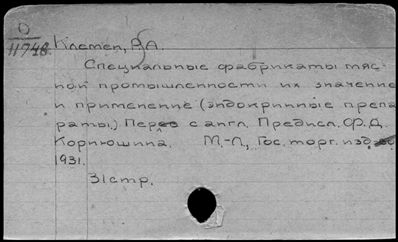 О
11748.
Клемен, Р.А.
Специальные фабрикаты мяс-
ной промышленности их значение
и применение (эндокринные препа-
раты.) Перев с англ. Предисл. Ф.Д.
Корнюшина. М.-Л., Гос. торг. изд-во
1931.
31стр.